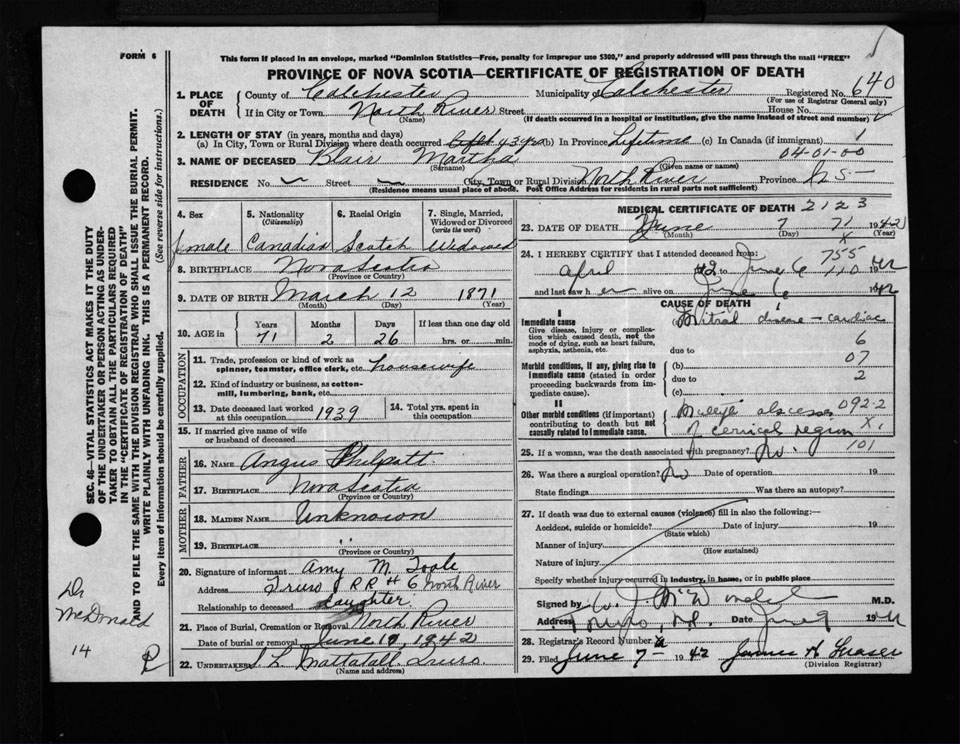 FORM 6
This form if placed in an envelope, marked "Dominion Statistics—Free, penalty for improper use $300," and properly addressed will pass through the mail "FREE"
PROVINCE OF NOVA SCOTIA—CERTIFICATE OF REGISTRATION OF DEATH
1. PLACE OF DEATH County of Colchester Municipality of Colchester Registered No. 640
(For use of Registrar General only)
If in City or Town North River Street House No.
(Name) (If death occurred in a hospital or institution, give the name instead of street and number)
2. LENGTH OF STAY (in years, months and days)
(a) In City, Town or Rural Division where death occurred 43 yrs (b) In Province Lifetime (c) In Canada (if immigrant)
04-01-00
3. NAME OF DECEASED Blair Martha
(Surname) (Given name or names)
RESIDENCE No. Street City, Town or Rural Division North River Province N S
(Residence means usual place of abode. Post Office Address for residents in rural parts not sufficient)
4. Sex 5. Nationality (Citizenship) 6. Racial Origin 7. Single, Married, Widowed or Divorced (write the word)
female Canadian Scotch Widowed
8. BIRTHPLACE Nova Scotia
(Province or Country)
9. DATE OF BIRTH March 12 1871
(Month) (Day) (Year)
10. AGE in Years Months Days If less than one day old
71 2 26 hrs. or min.
OCCUPATION
11. Trade, profession or kind of work as spinner, teamster, office clerk, etc. housewife
12. Kind of industry or business, as cotton-mill, lumbering, bank, etc.
13. Date deceased last worked at this occupation 1939 14. Total yrs. spent in this occupation
15. If married give name of wife or husband of deceased
FATHER
16. NAME Angus Philpatt
17. BIRTHPLACE Nova Scotia
(Province or Country)
MOTHER
18. MAIDEN NAME Unknown
19. BIRTHPLACE "
(Province or Country)
20. Signature of informant Amy M. Toole
Address Truro R R # 6 North River
Relationship to deceased daughter
21. Place of Burial, Cremation or Removal North River
Date of burial or removal June 1942
22. UNDERTAKER J. L. Mattatall, Truro.
(Name and address)
MEDICAL CERTIFICATE OF DEATH 2123
23. DATE OF DEATH June 7 71 1942
(Month) (Day) (Year)
X
24. I HEREBY CERTIFY that I attended deceased from: 755
April 42 to June 6 110 1942
and last saw her alive on June 6 1942
CAUSE OF DEATH
I
Immediate cause Mitral disease - cardiac
Give disease, injury or complication which caused death, not the mode of dying, such as heart failure, asphyxia, asthenia, etc.
6
due to
Morbid conditions, if any, giving rise to immediate cause (stated in order proceeding backwards from immediate cause).
(b) 07
due to 2
(c)
II
Other morbid conditions (if important) contributing to death but not causally related to immediate cause.
Multiple abscesses 092-2
of cervical region X1
101
25. If a woman, was the death associated with pregnancy? No.
26. Was there a surgical operation? No Date of operation 19
State findings Was there an autopsy?
27. If death was due to external causes (violence) fill in also the following:—
Accident, suicide or homicide? Date of injury 19
(State which)
Manner of injury
(How sustained)
Nature of injury
Specify whether injury occurred in industry, in home, or in public place
Signed by M.D.
Address Truro, N.S. Date June 9 1942
28. Registrar's Record Number
29. Filed June 7 1942 James A Fraser
(Division Registrar)
SEC. 46—VITAL STATISTICS ACT MAKES IT THE DUTY
OF THE UNDERTAKER OR PERSON ACTING AS UNDER-
TAKER TO OBTAIN ALL THE PARTICULARS REQUIRED
IN THE "CERTIFICATE OF REGISTRATION OF DEATH"
AND TO FILE THE SAME WITH THE DIVISION REGISTRAR WHO SHALL ISSUE THE BURIAL PERMIT.
WRITE PLAINLY WITH UNFADING INK. THIS IS A PERMANENT RECORD.
Every item of information should be carefully supplied. (See reverse side for instructions.)
Dr
McDonald
14